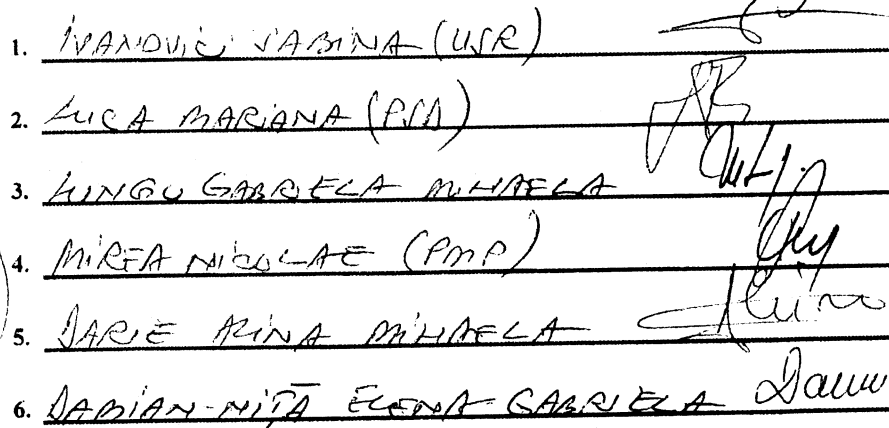 1. IVANOVICI SABINA (USR)
2. LUCA MARIANA (PSD)
3. LUNGU GABRIELA MIHAELA
4. MIREA NICOLAE (PMP)
5. DARIE ALINA MIHAELA
6. DAMIAN-NIȚĂ ELENA GABRIELA